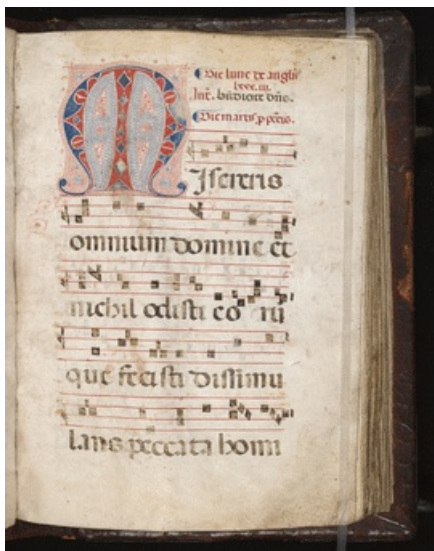 Die lune de angłis
lxxx. iii.
Int̃. bñdicite dñs.
Die martis p pctis.
MIsereris
omnium domine et
nichil odisti eo ru
que fecisti dissimu
lans peccata homi